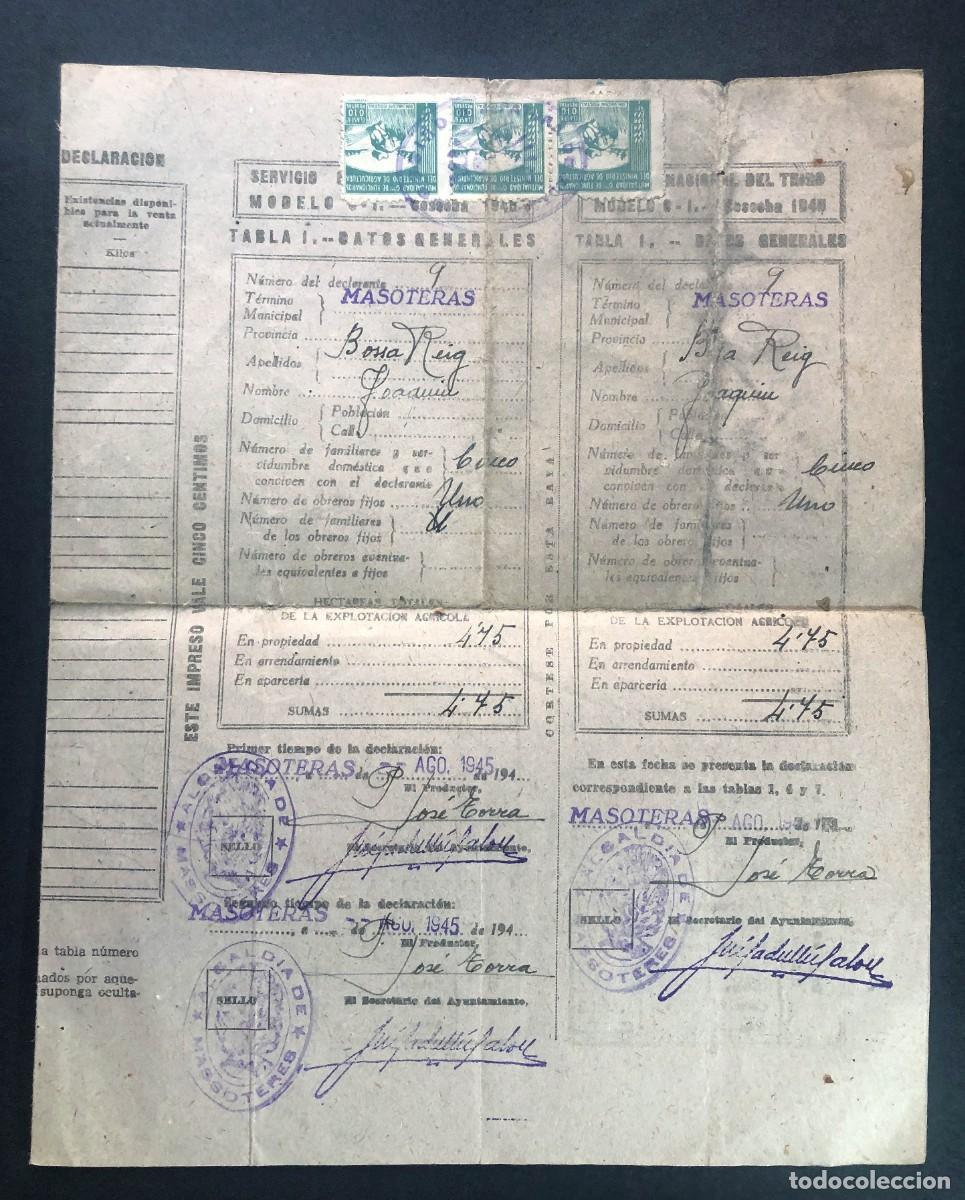 DECLARACION
Existencias disponi-
bles para la venta
actualmente
Kilos
ESTE IMPRESO VALE CINCO CENTIMOS
a tabla número
nados por aque-
suponga oculta-
MUTUALIDAD Gral DE FUNCIONARIOS
DEL MINISTERIO DE AGRICULTURA
0,10
SERVICIO
MODELO C-1. — Cosecha 1945
TABLA I. -- DATOS GENERALES
Número del declarante 9
Término
Municipal
MASOTERAS
Provincia
Apellidos
Bossa Reig
Nombre Joaquin
Domicilio
Población
Calle
Número de familiares y ser-
vidumbre doméstica que
conviven con el declarante
Cinco
Número de obreros fijos Uno
Número de familiares
de los obreros fijos
Número de obreros eventua-
les equivalentes a fijos
HECTAREAS TOTALES
DE LA EXPLOTACION AGRICOLA
En propiedad 4'75
En arrendamiento
En aparcería
SUMAS 4'75
Primer tiempo de la declaración:
MASOTERAS AGO. 1945 de 194
El Productor,
P. José Torra
El Secretario del Ayuntamiento,
SELLO
ALCALDIA DE MASSOTERES
Segundo tiempo de la declaración:
MASOTERAS, a de AGO. 1945 de 194
El Productor,
P. José Torra
SELLO
El Secretario del Ayuntamiento,
ALCALDIA DE MASSOTERES
CORTESE POR ESTA RAYA
NACIONAL DEL TRIGO
MODELO C-1. — Cosecha 1945
TABLA I. -- DATOS GENERALES
Número del declarante 9
Término
Municipal
MASOTERAS
Provincia
Apellidos
Reig
Nombre Joaquin
Domicilio
Población
Calle
Número de familiares y ser-
vidumbre doméstica que
conviven con el declarante
Cinco
Número de obreros fijos Uno
Número de familiares
de los obreros fijos
Número de obreros eventua-
les equivalentes a fijos
DE LA EXPLOTACION AGRICOLA
En propiedad 4'75
En arrendamiento
En aparcería
SUMAS 4'75
En esta fecha se presenta la declaración
correspondiente a las tablas 1, 6 y 7.
MASOTERAS AGO.
El Productor,
P. José Torra
SELLO
El Secretario del Ayuntamiento,
ALCALDIA DE MASSOTERES
todocoleccion